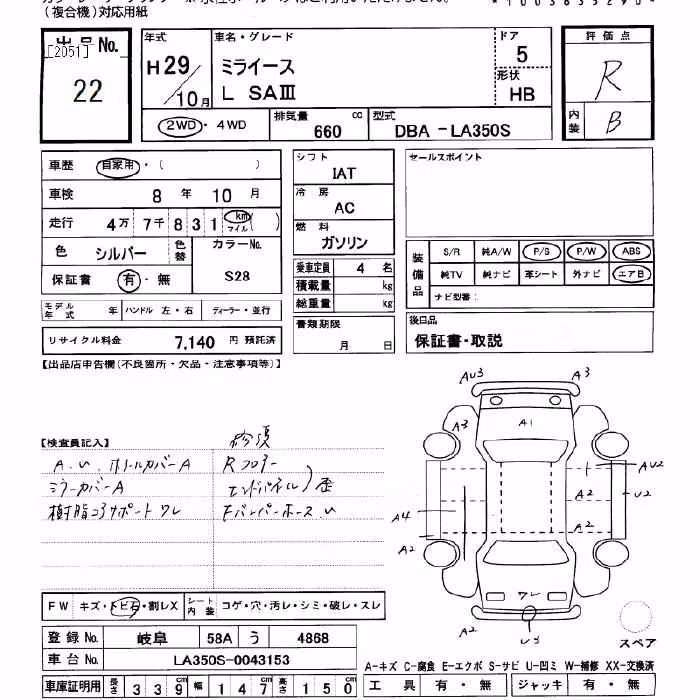 (複合機)対応用紙
*1003635290*
出品No.
[2051]
22
年式
H29/10月
車名・グレード
ミライース
L SAⅢ
ドア
5
形状
HB
2WD・4WD
排気量
660 cc
型式
DBA-LA350S
評価点
R
内装
B
車歴 自家用・( )
車検 8年 10月
走行 4万 7千 8 3 1 km マイル ( )
色 シルバー
色替
カラーNo.
S28
保証書 有・無
モデル年式 年
ハンドル 左・右
ディーラー・並行
リサイクル料金 7,140 円 預託済
シフト
IAT
冷房
AC
燃料
ガソリン
乗車定員 4 名
積載量 kg
総重量 kg
書類期限
月 日
セールスポイント
装備品
S/R 純A/W P/S P/W ABS
純TV 純ナビ 革シート 外ナビ エアB
ナビ型番:
後日品
保証書・取説
【出品店申告欄(不良箇所・欠品・注意事項等)】
【検査員記入】
A.U. ホイールカバーA
ミラーカバーA
樹脂コアサポートワレ
修復
Rフロアー
エンドパネル)歪
FバンパーホースU
AU3
A3
A3
A1
AU2
U2
A2
A4
A2
A2
ワレ
A2
U3
スペア
FW キズ・トビ石・割レX
シート内装 コゲ・穴・汚レ・シミ・破レ・スレ
登録No. 岐阜 58A う 4868
車台No. LA350S-0043153
車庫証明用 長さ 339 幅 147 高さ 150
A-キズ C-腐食 E-エクボ S-サビ U-凹ミ W-補修 XX-交換済
工具 有・無 ジャッキ 有・無